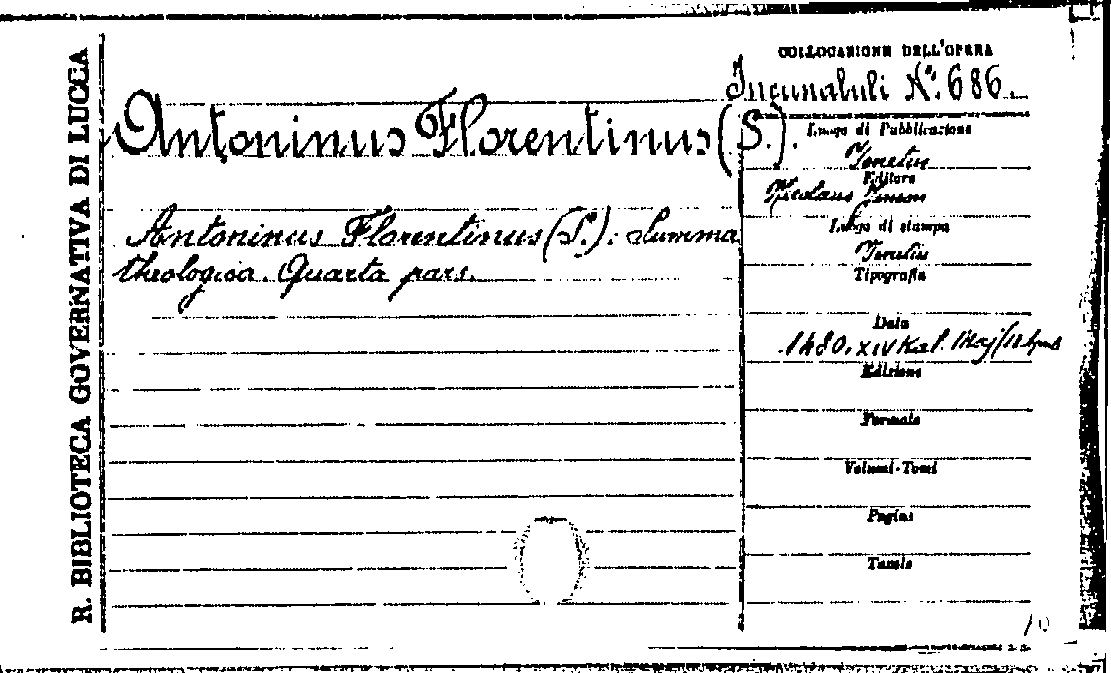 R. BIBLIOTECA GOVERNATIVA DI LUCCA
COLLOCAZIONE DELL'OPERA
Incunabuli N.º 686.
Antoninus Florentinus (S.).
Antoninus Florentinus (S.): Summa
theologica. Quarta pars.
Luogo di Pubblicazione
Venetiis
Editore
Nicolaus Jenson
Luogo di stampa
Venetiis
Tipografia
Data
1480. XIV Kal. Maj
Edizione
Formato
Volumi-Tomi
Pagine
Tavole
10